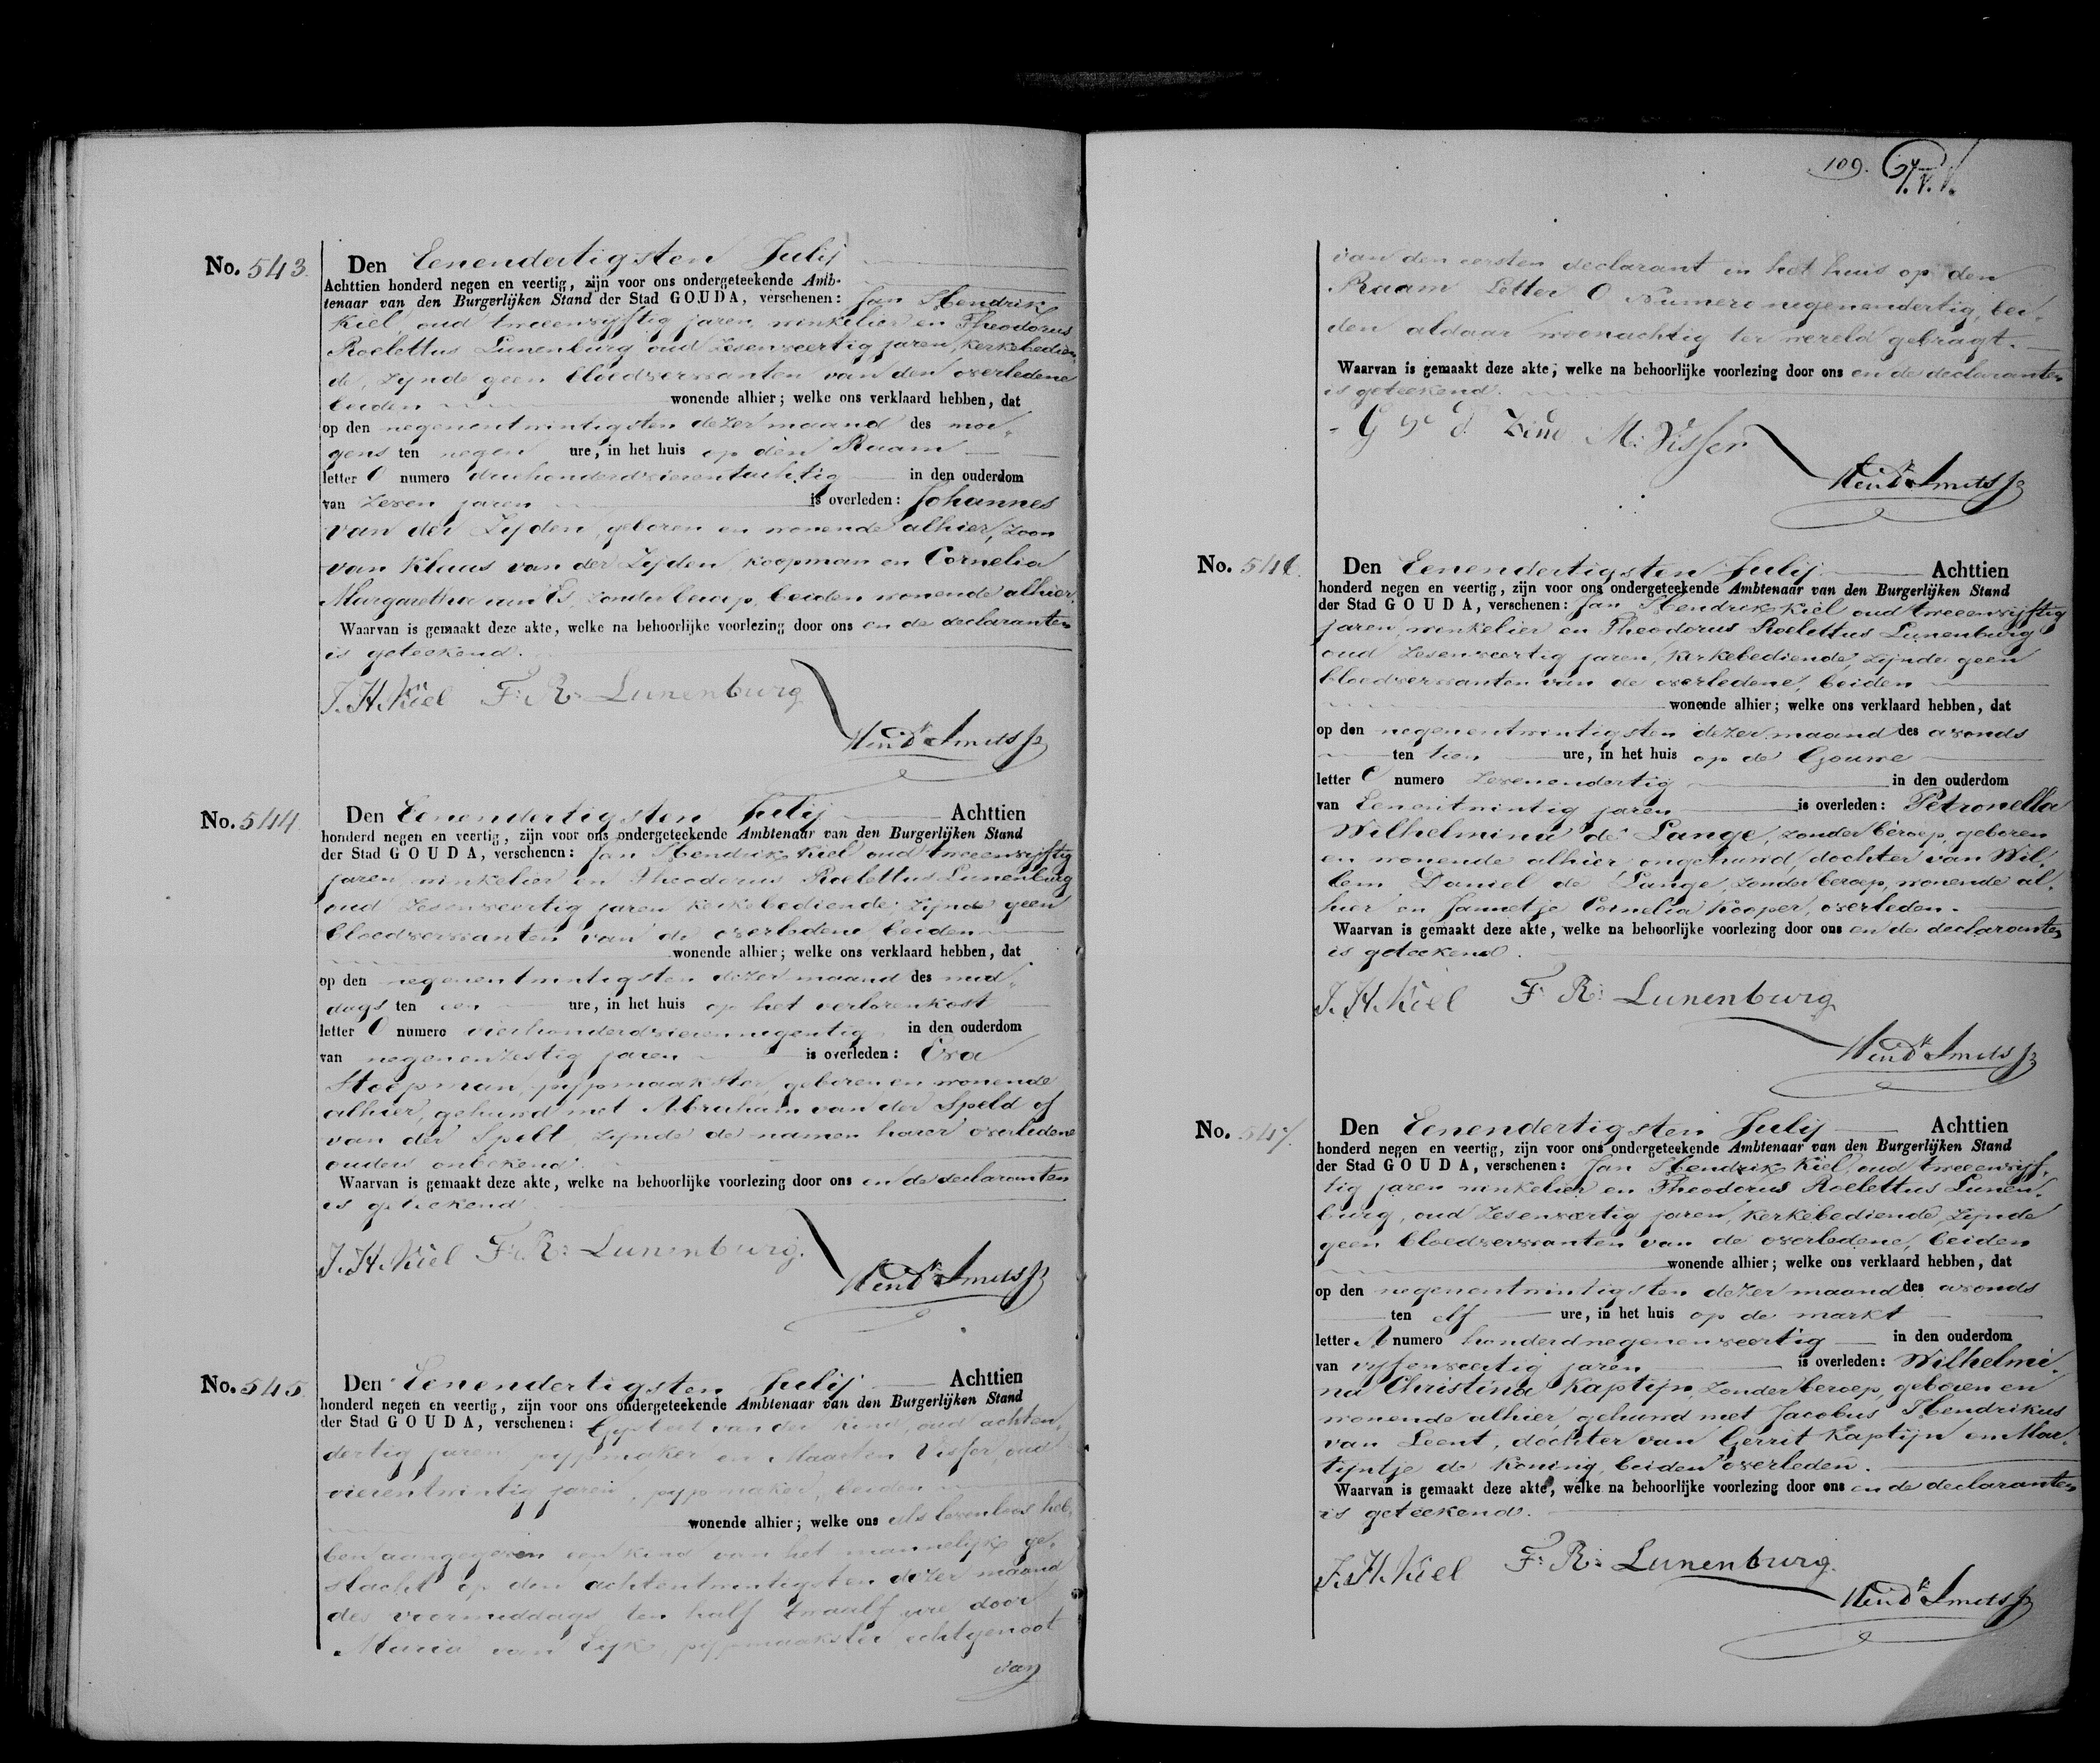 No. 543.
Den Eenendertigsten Julij
Achttien honderd negen en veertig, zijn voor ons ondergeteekende Amb-
tenaar van den Burgerlijken Stand der Stad GOUDA, verschenen: Jan Hendrik
Kiel, oud tweeenvijftig jaren, winkelier en Theodorus
Roelettus Lunenburg oud zesenveertig jaren, kerkebedien-
de, zijnde geen bloedverwanten van den overledene
beiden wonende alhier; welke ons verklaard hebben, dat
op den negenentwintigsten dezer maand des mor-
gens ten negen ure, in het huis op den Raam
letter O numero driehonderdvierentachtig in den ouderdom
van zeven jaren is overleden: Johannes
van der Zijden, geboren en wonende alhier, zoon
van Klaas van der Zijden, koopman en Cornelia
Margaretha van Es, zonder beroep, beiden wonende alhier.
Waarvan is gemaakt deze akte, welke na behoorlijke voorlezing door ons en de declaranten
is geteekend.
J. H. Kiel F: R: Lunenburg
Hendk Smits Jz
No. 544
Den Eenendertigsten Julij Achttien
honderd negen en veertig, zijn voor ons ondergeteekende Ambtenaar van den Burgerlijken Stand
der Stad GOUDA, verschenen: Jan Hendrik Kiel oud tweeenvijftig
jaren, winkelier en Theodorus Roelettus Lunenburg
oud zesenveertig jaren kerkebediende, zijnde geen
bloedverwanten van de overledene, beiden
wonende alhier; welke ons verklaard hebben, dat
op den negenentwintigsten dezer maand des mid-
dags ten een ure, in het huis op het verlorenkost
letter O numero vierhonderdvierennegentig in den ouderdom
van negenenzestig jaren is overleden: Eva
Stoepman, pijpmaakster, geboren en wonende
alhier, gehuwd met Abraham van der Speld of
van der Spelt, zijnde de namen harer overledene
ouders onbekend.
Waarvan is gemaakt deze akte, welke na behoorlijke voorlezing door ons en de declaranten
is geteekend
J. H. Kiel F: R: Lunenburg.
Hendk Smits Jz
No. 545
Den Eenendertigsten Julij Achttien
honderd negen en veertig, zijn voor ons ondergeteekende Ambtenaar van den Burgerlijken Stand
der Stad GOUDA, verschenen: Gijsbert van der Kind, oud achten-
dertig jaren, pijpmaker en Maarten Visser, oud
vierentwintig jaren, pijpmaker, beiden
wonende alhier; welke ons als levenloos heb-
ben aangegeven een kind van het mannelijk ge-
slacht op den achtentwintigsten dezer maand
des voormiddags ten half twaalf ure door
Maria van Eijk, pijpmaakster echtgenoot
van
109.
van den eersten declarant in het huis op den
Raam Letter O Numero negenendertig, bei-
den aldaar woonachtig ter wereld gebragt.
Waarvan is gemaakt deze akte; welke na behoorlijke voorlezing door ons en de declaranten
is geteekend.
M: Visser
Hendk Smits Jz
No. 546.
Den Eenendertigsten Julij Achttien
honderd negen en veertig, zijn voor ons ondergeteekende Ambtenaar van den Burgerlijken Stand
der Stad GOUDA, verschenen: Jan Hendrik Kiel oud tweeenvijftig
jaren, winkelier en Theodorus Roelettus Lunenburg
oud zesenveertig jaren, kerkebediende, zijnde geen
bloedverwanten van de overledene, beiden
wonende alhier; welke ons verklaard hebben, dat
op den negenentwintigsten dezer maand des avonds
ten tien ure, in het huis op de Gouwe
letter C numero zevenendertig in den ouderdom
van Eenentwintig jaren is overleden: Petronella
Wilhelmina de Lange, zonder beroep, geboren
en wonende alhier ongehuwd, dochter van Wil-
lem Daniel de Lange, zonder beroep, wonende al-
hier en Jannetje Cornelia Kooper, overleden.
Waarvan is gemaakt deze akte, welke na behoorlijke voorlezing door ons en de declaranten
is geteekend.
J. H. Kiel F: R: Lunenburg
Hendk Smits Jz
No. 547.
Den Eenendertigsten Julij Achttien
honderd negen en veertig, zijn voor ons ondergeteekende Ambtenaar van den Burgerlijken Stand
der Stad GOUDA, verschenen: Jan Hendrik Kiel, oud tweeenvijf-
tig jaren winkelier en Theodorus Roelettus Lunen-
burg, oud zesenveertig jaren, kerkebediende, zijnde
geen bloedverwanten van de overledene, beiden
wonende alhier; welke ons verklaard hebben, dat
op den negenentwintigsten dezer maand des avonds
ten elf ure, in het huis op de markt
letter A numero honderdnegenenveertig in den ouderdom
van vijfenveertig jaren is overleden: Wilhelmi-
na Christina Kaptijn, zonder beroep, geboren en
wonende alhier, gehuwd met Jacobus Hendrikus
van Leent, dochter van Gerrit Kaptijn en Mar-
tijntje de Koning, beiden overleden.
Waarvan is gemaakt deze akte, welke na behoorlijke voorlezing door ons en de declaranten
is geteekend.
J. H. Kiel F: R: Lunenburg.
Hendk Smits Jz